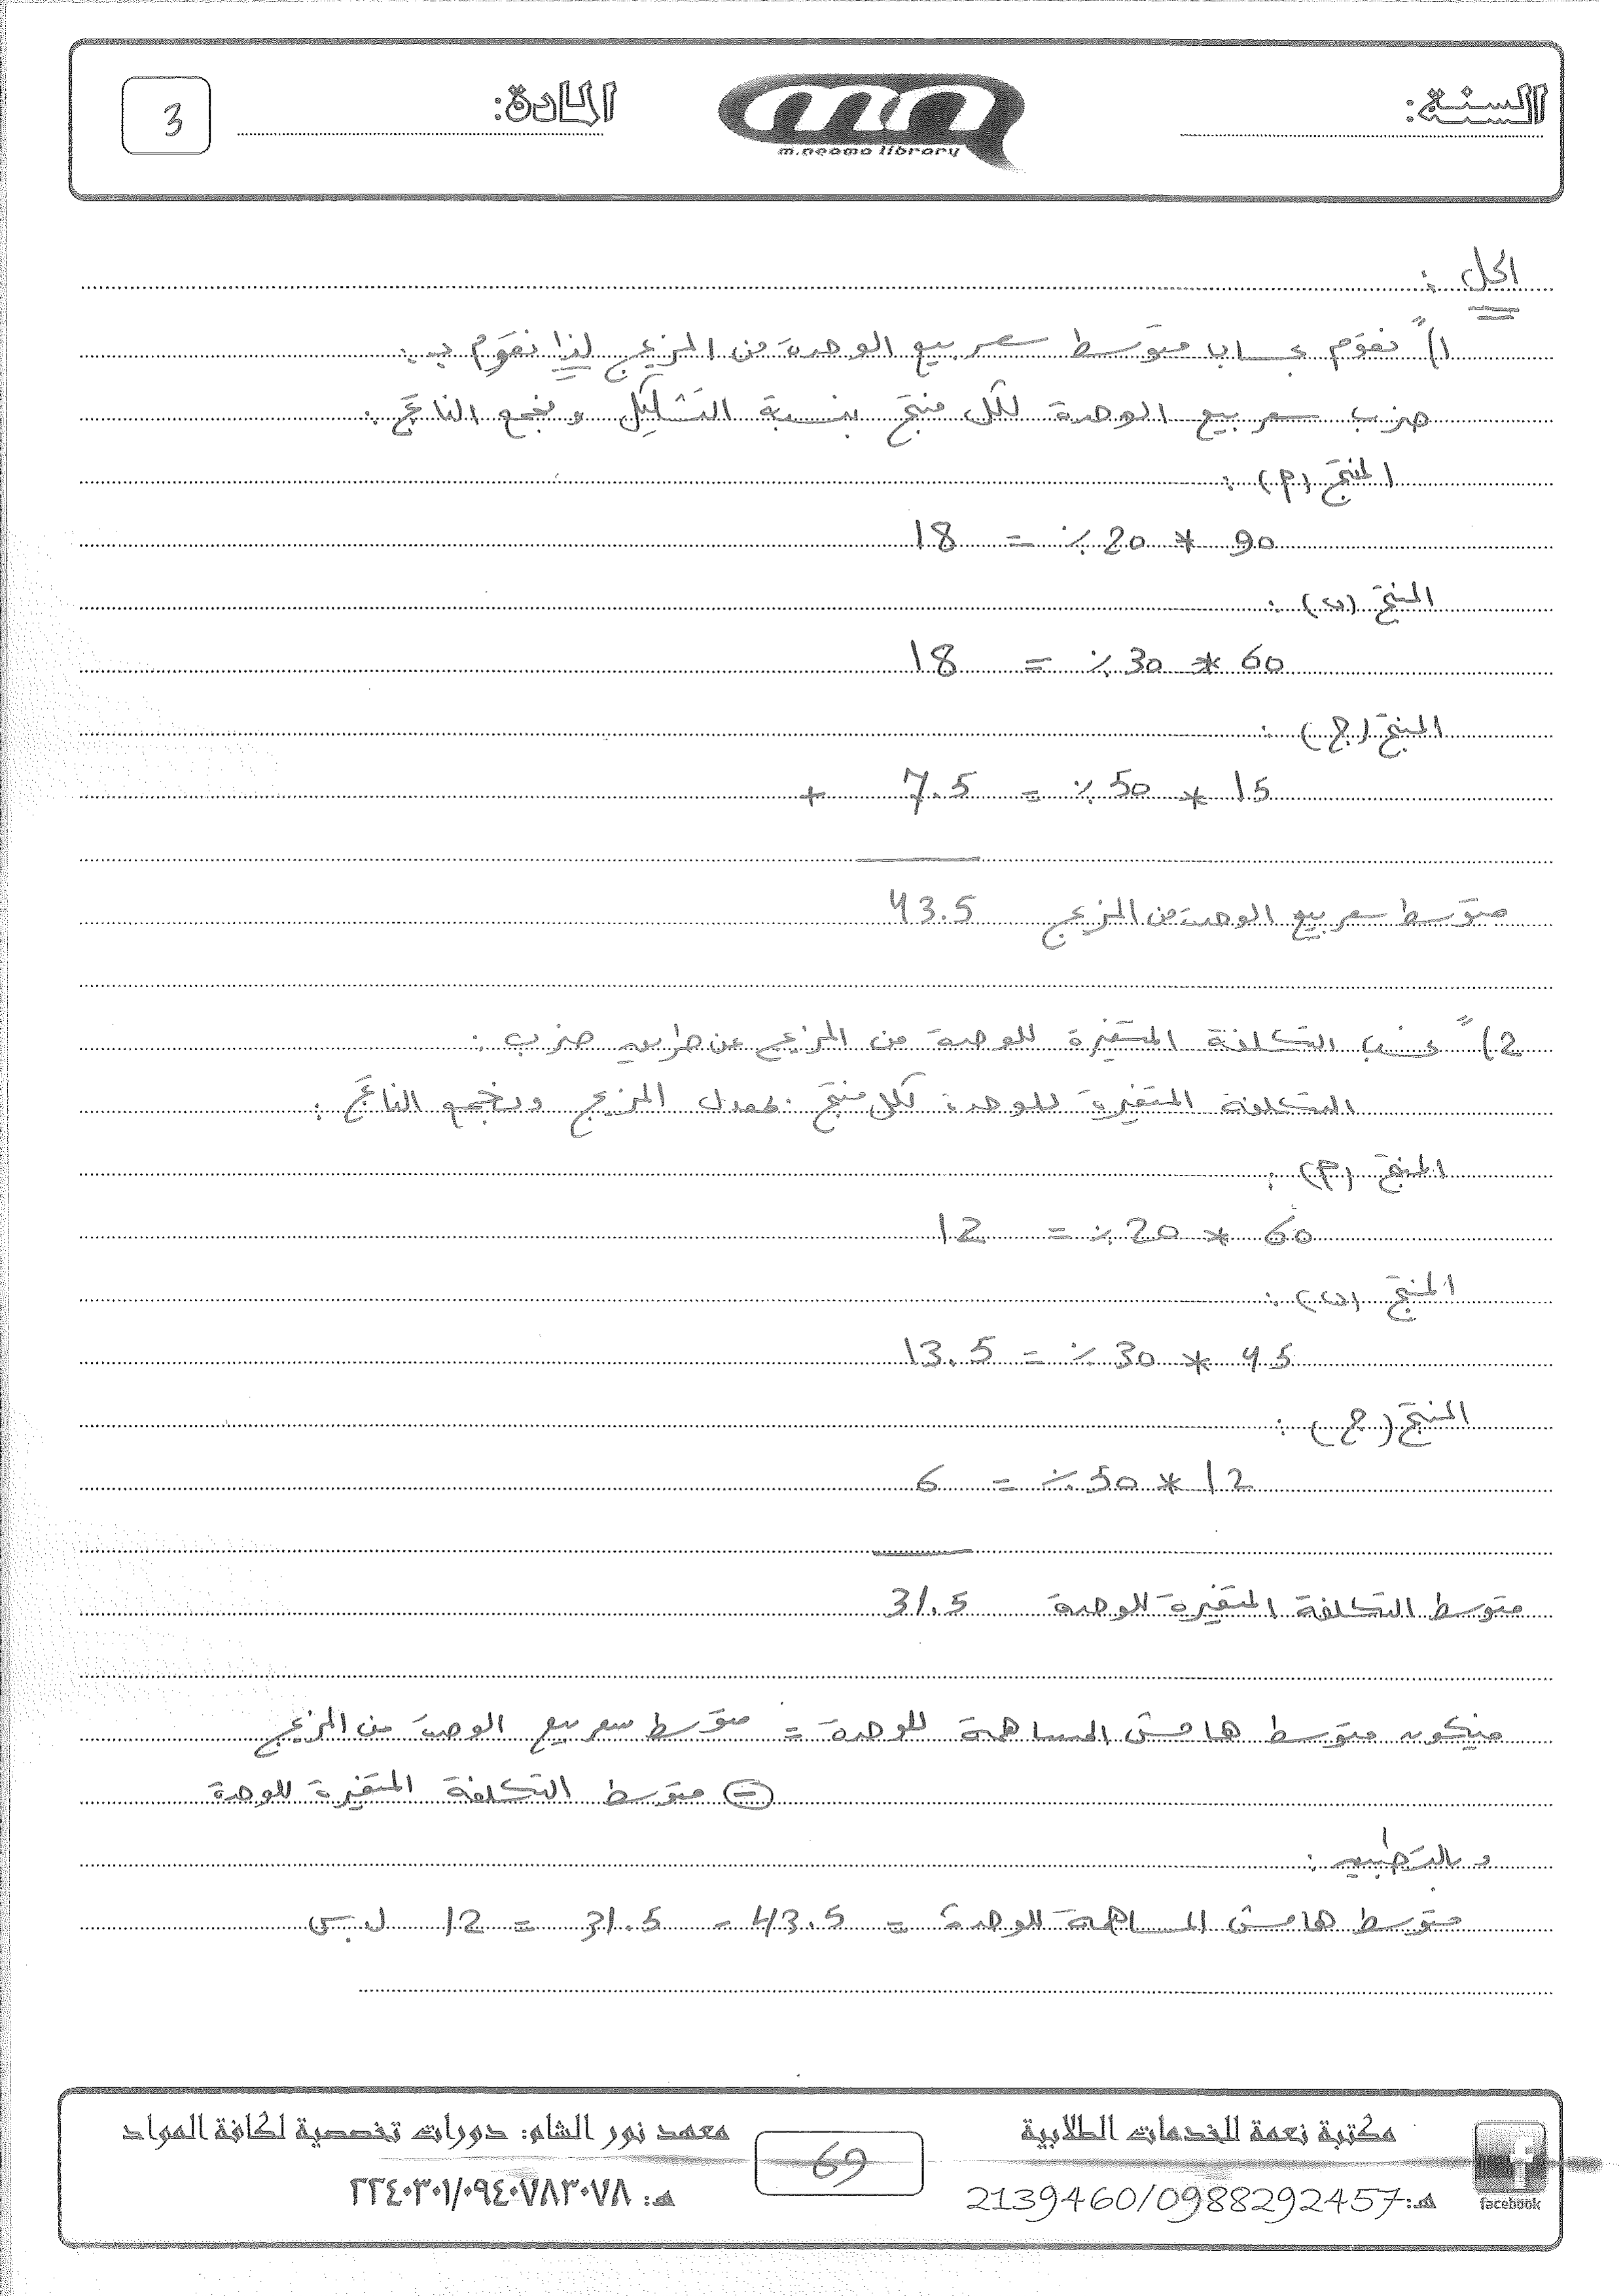 السنة:
m.neama library
المادة:
3
الحل :
1)ً نقوم بحساب متوسط سعر بيع الوحدة من المزيج لذا نقوم بـ :
ضرب سعر بيع الوحدة لكل منتج بنسبة التشكيل ونجمع الناتج :
المنتج (م) :
90 * 20 ٪ = 18
المنتج (ب) :
60 * 30 ٪ = 18
المنتج (ج) :
15 * 50 ٪ = 7.5 +
متوسط سعر بيع الوحدة من المزيج 43.5
2)ً نحسب التكلفة المتغيرة للوحدة من المزيج عن طريق ضرب :
التكلفة المتغيرة للوحدة لكل منتج بمعدل المزيج ونجمع الناتج :
المنتج (م) :
60 * 20 ٪ = 12
المنتج (ب) :
45 * 30 ٪ = 13.5
المنتج (ج) :
12 * 50 ٪ = 6
متوسط التكلفة المتغيرة للوحدة 31.5
فيكون متوسط هامش المساهمة للوحدة = متوسط سعر بيع الوحدة من المزيج
(-) متوسط التكلفة المتغيرة للوحدة
وبالتطبيق :
متوسط هامش المساهمة للوحدة = 43.5 - 31.5 = 12 ل.س
facebook
مكتبة نعمة للخدمات الطلابية
هـ: 2139460/0988292457
69
معهد نور الشام: دورات تخصصية لكافة المواد
هـ: ٢٢٤٠٣٠١/٠٩٤٠٧٨٣٠٧٨